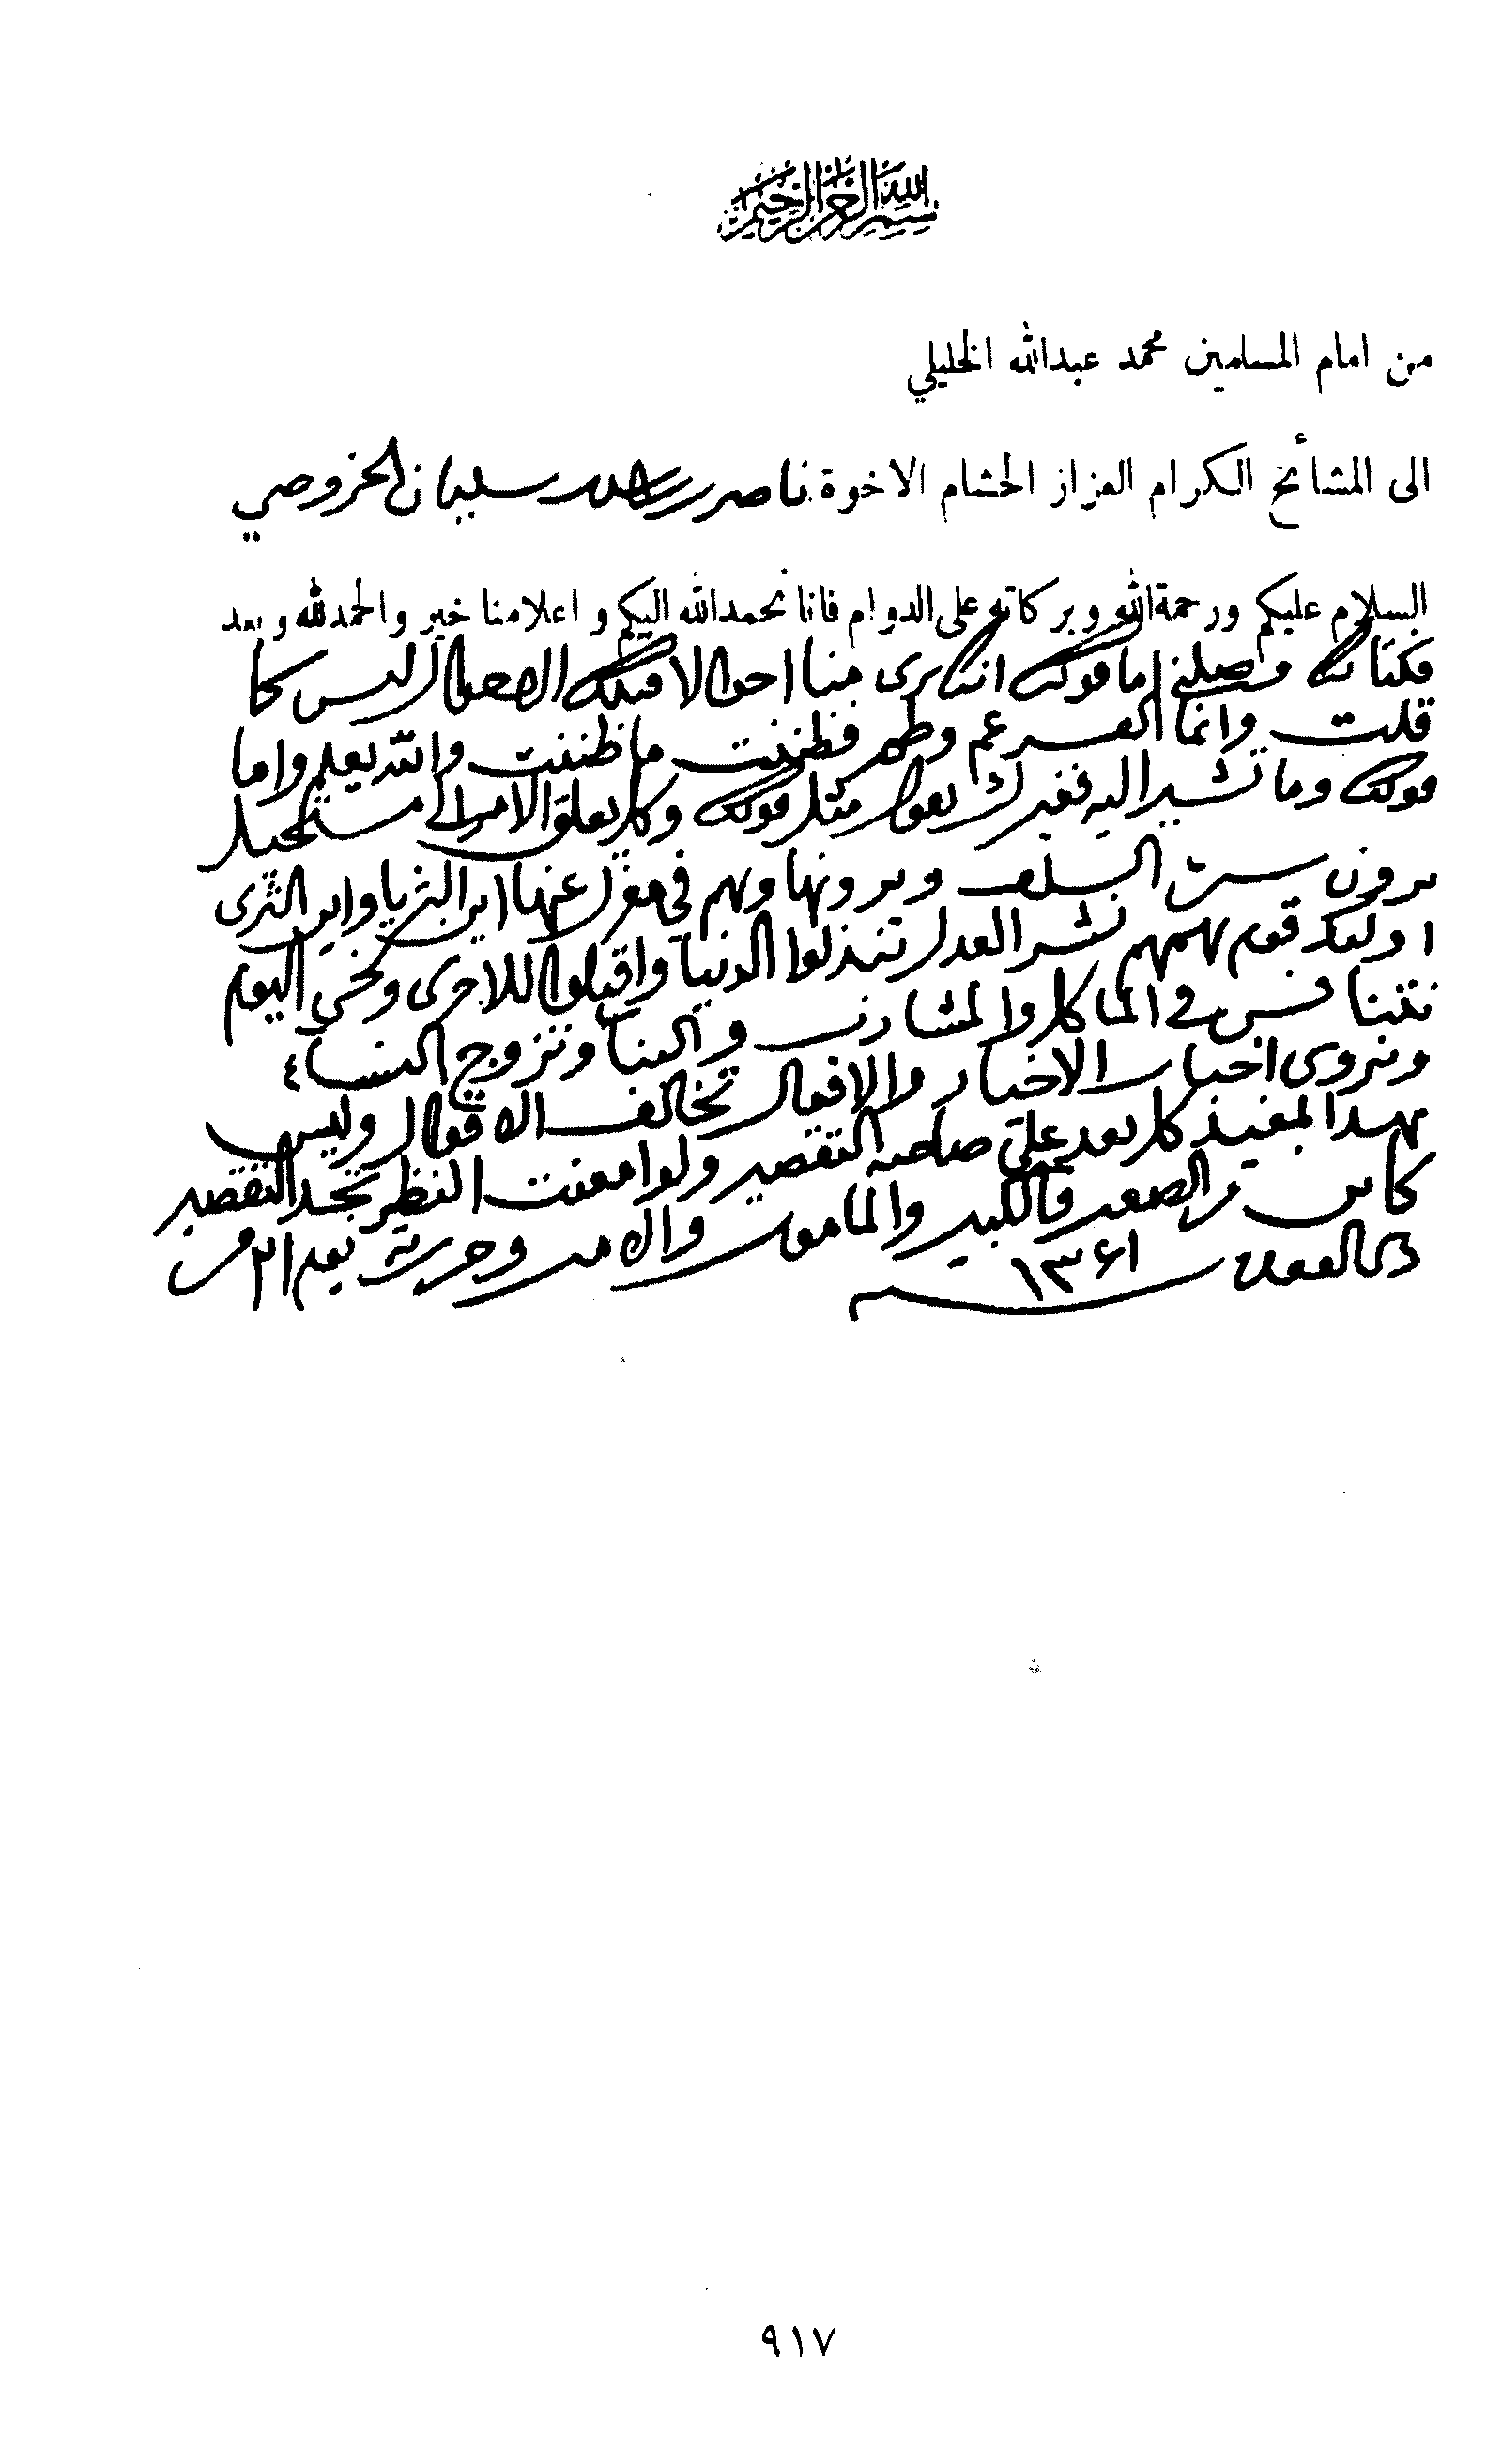 بسم الله الرحمن الرحيم
من امام المسلمين محمد عبدالله الخليلي
الى المشائخ الكرام العزاز الحشام الاخوة ناصر بن راشد بن سليمان الخروصي
السلام عليكم ورحمة الله وبركاته على الدوام فانا نحمد الله اليكم و اعلامنا خير والحمد لله و بعد
فكتابك وصلني اما قولك انك ترى منا احوالا فتلك الاحوال ليس كما
قلت وانما فظننت ما ظننت والله يعلم واما
قولك وما تشير اليه فغيرك يقول مثل قولك وكل يعلق الامر الى مستحيل
يرون سيرة السلف ويروونها وهم في معزل عنها اين الثريا واين الثرى
اولئك قوم همهم نشر العدل تبذلوا الدنيا واقبلوا للاخرى ونحن اليوم
نتنافس في المآكل والمشارب والبنا وتزوج النساء
ونروى اخبار الاخيار والافعال تخالف الاقوال وليس
بهذا لمفيد كل يعد على صاحبه التقصير ولو امعنت النظر تجد التقصير
كائن من الصغير والكبير والمأمور والآمر وحررته يوم ٢١ من
ذي القعدة ١٣٦١
٩١٧